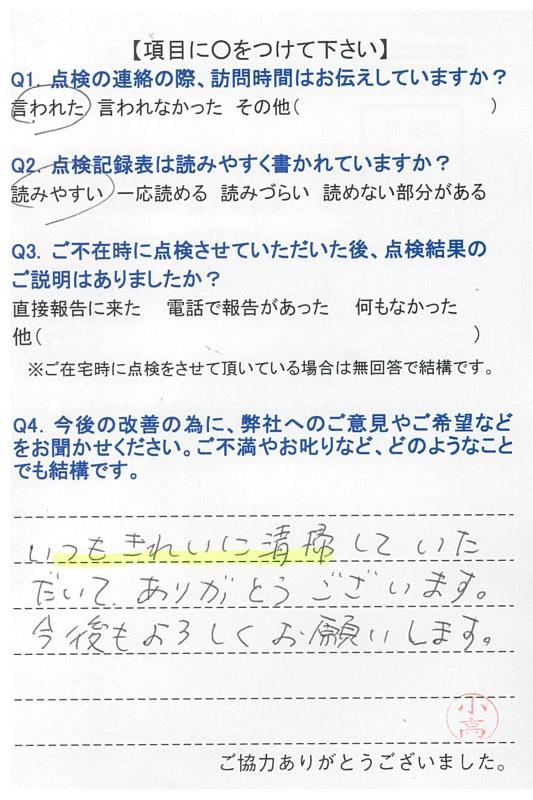 【項目に〇をつけて下さい】
Q1. 点検の連絡の際、訪問時間はお伝えしていますか？
言われた 言われなかった その他（ ）
Q2. 点検記録表は読みやすく書かれていますか？
読みやすい 一応読める 読みづらい 読めない部分がある
Q3. ご不在時に点検させていただいた後、点検結果の
ご説明はありましたか？
直接報告に来た 電話で報告があった 何もなかった
他（ ）
※ご在宅時に点検をさせて頂いている場合は無回答で結構です。
Q4. 今後の改善の為に、弊社へのご意見やご希望など
をお聞かせください。ご不満やお叱りなど、どのようなこと
でも結構です。
いつもきれいに清掃していた
だいて、ありがとうございます。
今後もよろしくお願いします。
小高
ご協力ありがとうございました。